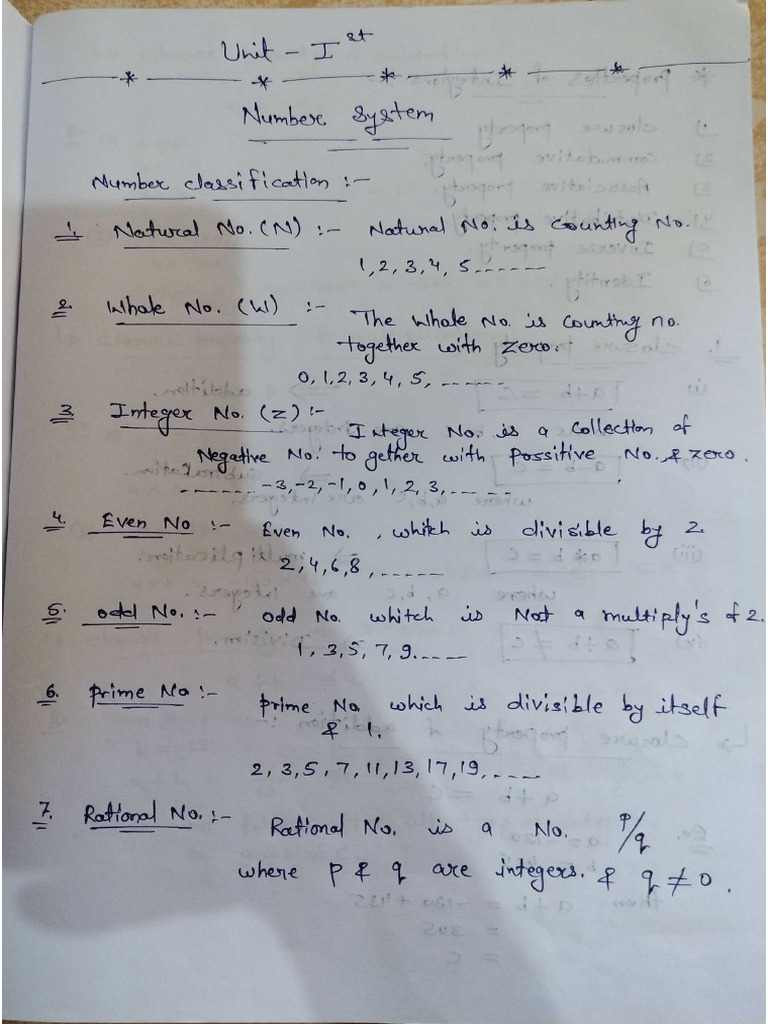 Unit - I st
Number System
Number classification :-
1. Natural No. (N) :- Natural No. is counting No.
1, 2, 3, 4, 5.......
2. Whole No. (W) :- The Whole No. is counting no.
together with zero.
0, 1, 2, 3, 4, 5, ......
3. Integer No. (z) :- Integer No. is a collection of
Negative No. to gether with possitive No. & zero.
...... -3, -2, -1, 0, 1, 2, 3, ......
4. Even No :- Even No. , whitch is divisible by 2
2, 4, 6, 8, ......
5. odd No. :- odd No. whitch is Not a multiply's of 2.
1, 3, 5, 7, 9......
6. prime No :- prime No. which is divisible by itself
& 1.
2, 3, 5, 7, 11, 13, 17, 19, ......
7. Rational No. :- Rational No. is a No. p/q
where p & q are integers. & q ≠ 0.